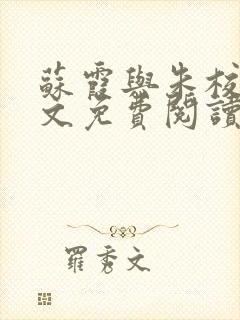 蘇霞與朱校
文免費閱讀
羅秀文